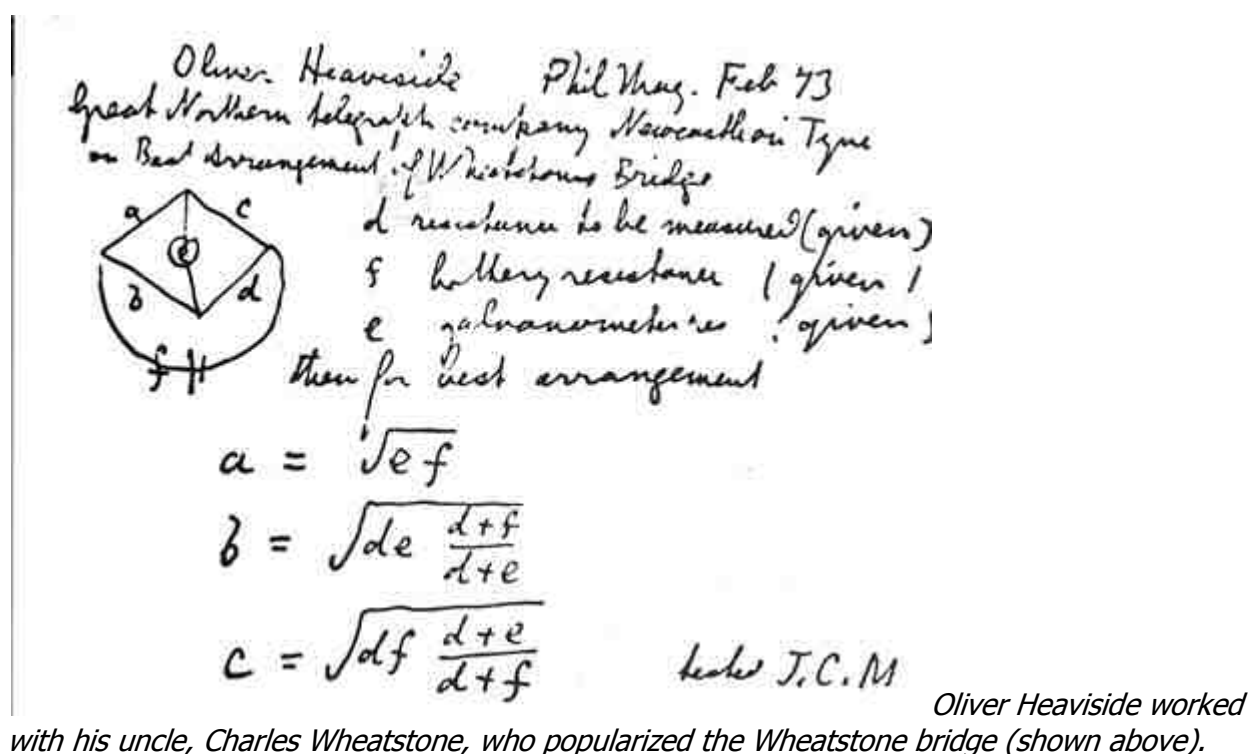 Oliver Heaviside Phil Mag. Feb 73
Great Northern telegraph company Newcastle on Tyne
on Best Arrangement of Wheatstones Bridge
a c
e
b d
f
d resistance to be measured (given)
f battery resistance (given)
e galvanometer res (given)
then for best arrangement
a = √ef
b = √de d+f/d+e
c = √df d+e/d+f
J.C.M
Oliver Heaviside worked
with his uncle, Charles Wheatstone, who popularized the Wheatstone bridge (shown above).